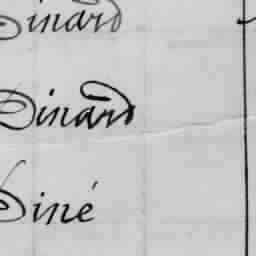 Dinard
Dinard
Diné